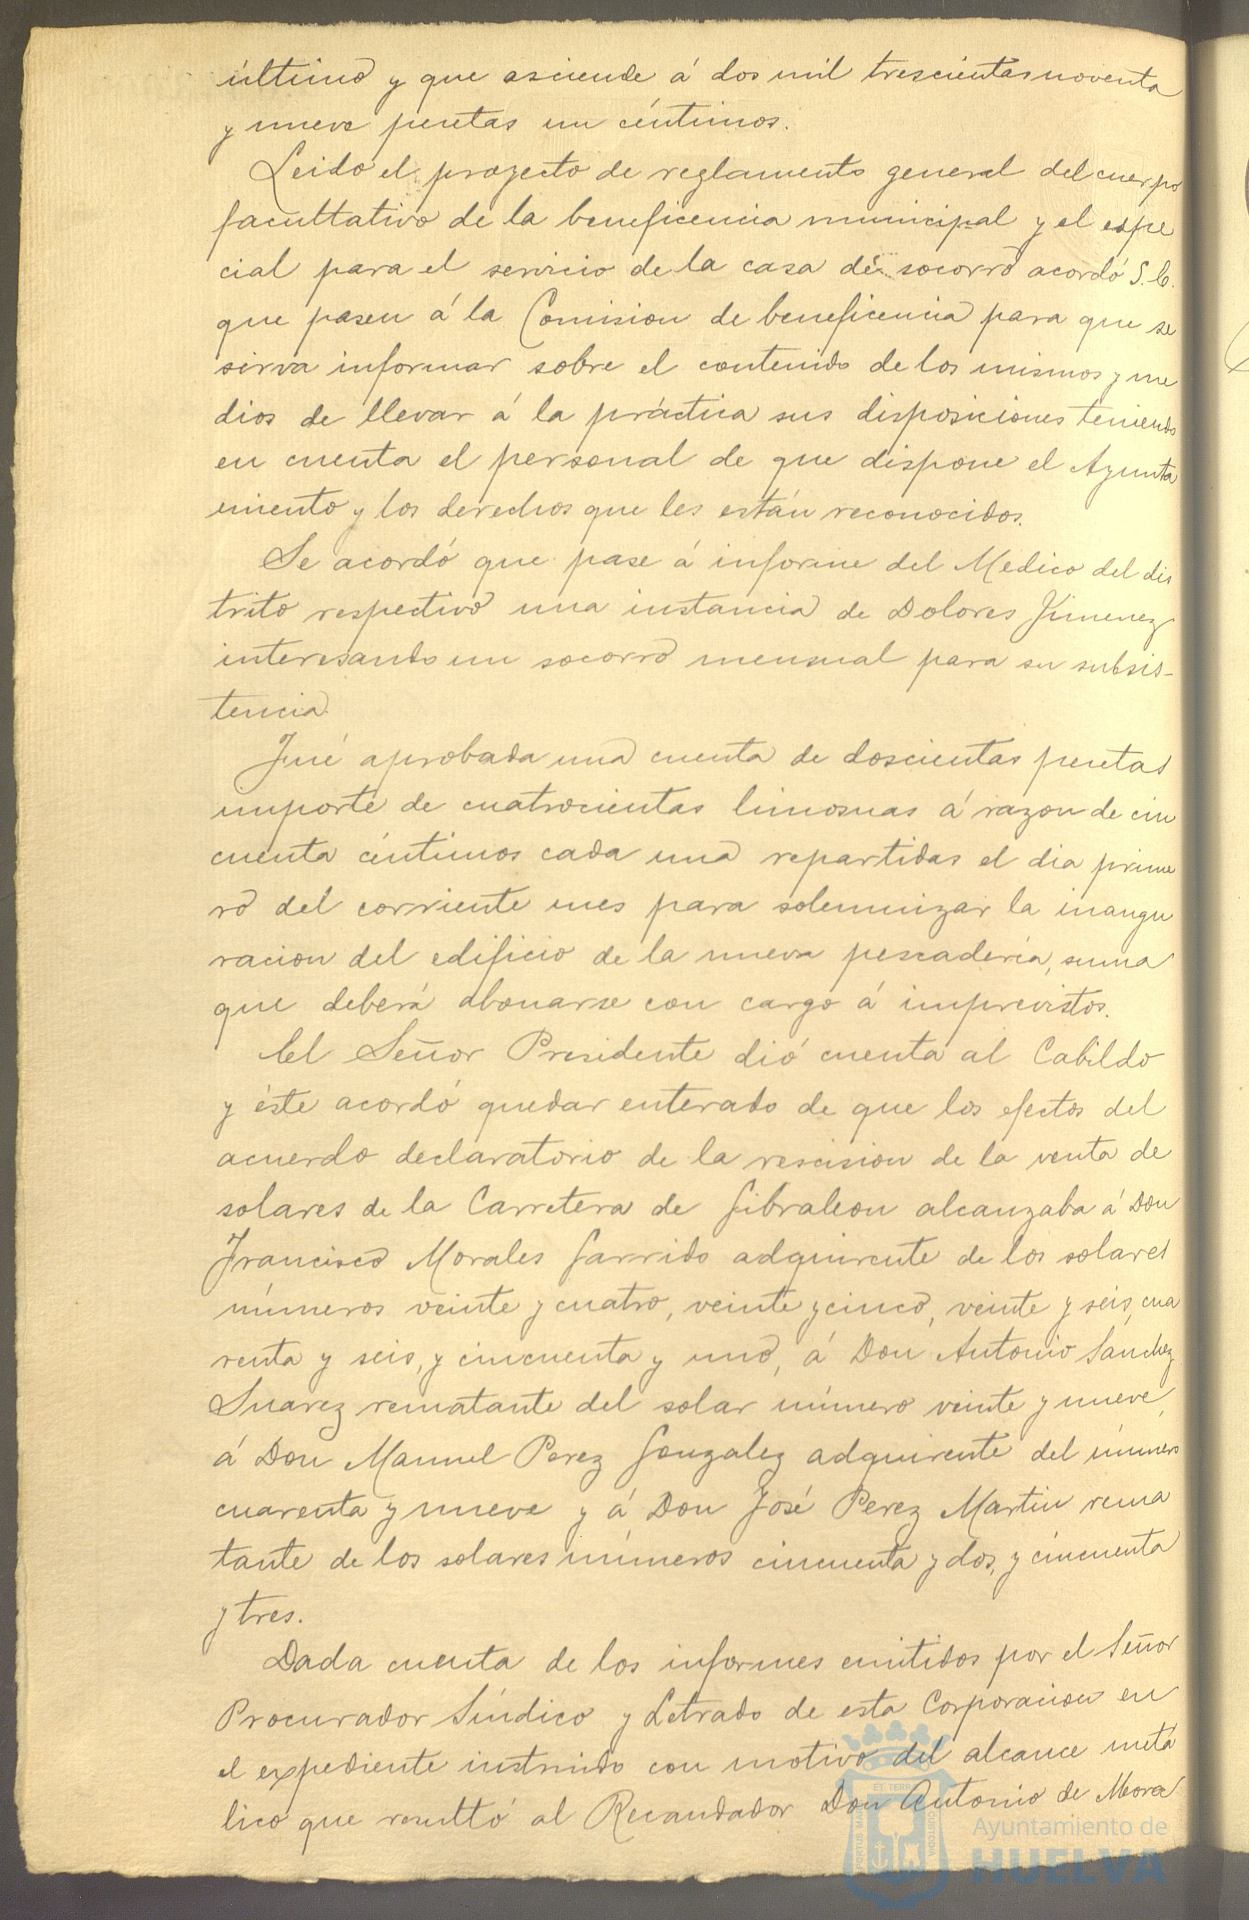 último y que asciende á dos mil trescientas noventa
y nueve pesetas un céntimos.
Leido el proyecto de reglamento general del cuerpo
facultativo de la beneficencia municipal y el espe
cial para el servicio de la casa de socorro acordó S.E.
que pasen á la Comision de beneficencia para que se
sirva informar sobre el contenido de los mismos y me
dios de llevar á la práctica sus disposiciones teniendo
en cuenta el personal de que dispone el Ayunta
miento y los derechos que les están reconocidos.
Se acordó que pase á informe del Medico del dis
trito respectivo una instancia de Dolores Jimenez
interesando un socorro mensual para su subsis-
tencia.
Fué aprobada una cuenta de doscientas pesetas
importe de cuatrocientas limosnas á razon de cin
cuenta céntimos cada una repartidas el dia prime
ro del corriente mes para solemnizar la inaugu
racion del edificio de la nueva pescadería, suma
que deberá abonarse con cargo á imprevistos.
El Señor Presidente dió cuenta al Cabildo
y éste acordó quedar enterado de que los efectos del
acuerdo declaratorio de la rescision de la venta de
solares de la Carretera de Gibraleon alcanzaba á Don
Francisco Morales Garrido adquirente de los solares
números veinte y cuatro, veinte y cinco, veinte y seis, cua
renta y seis, y cincuenta y uno, á Don Antonio Sanchez
Suarez rematante del solar número veinte y nueve,
á Don Manuel Perez Gonzalez adquirente del número
cuarenta y nueve y á Don José Perez Martin rema
tante de los solares números cincuenta y dos, y cincuenta
y tres.
Dada cuenta de los informes emitidos por el Señor
Procurador Síndico y Letrado de esta Corporacion en
el expediente instruido con motivo del alcance metá
lico que resultó al Recaudador Don Antonio de Mora
Ayuntamiento de
HUELVA